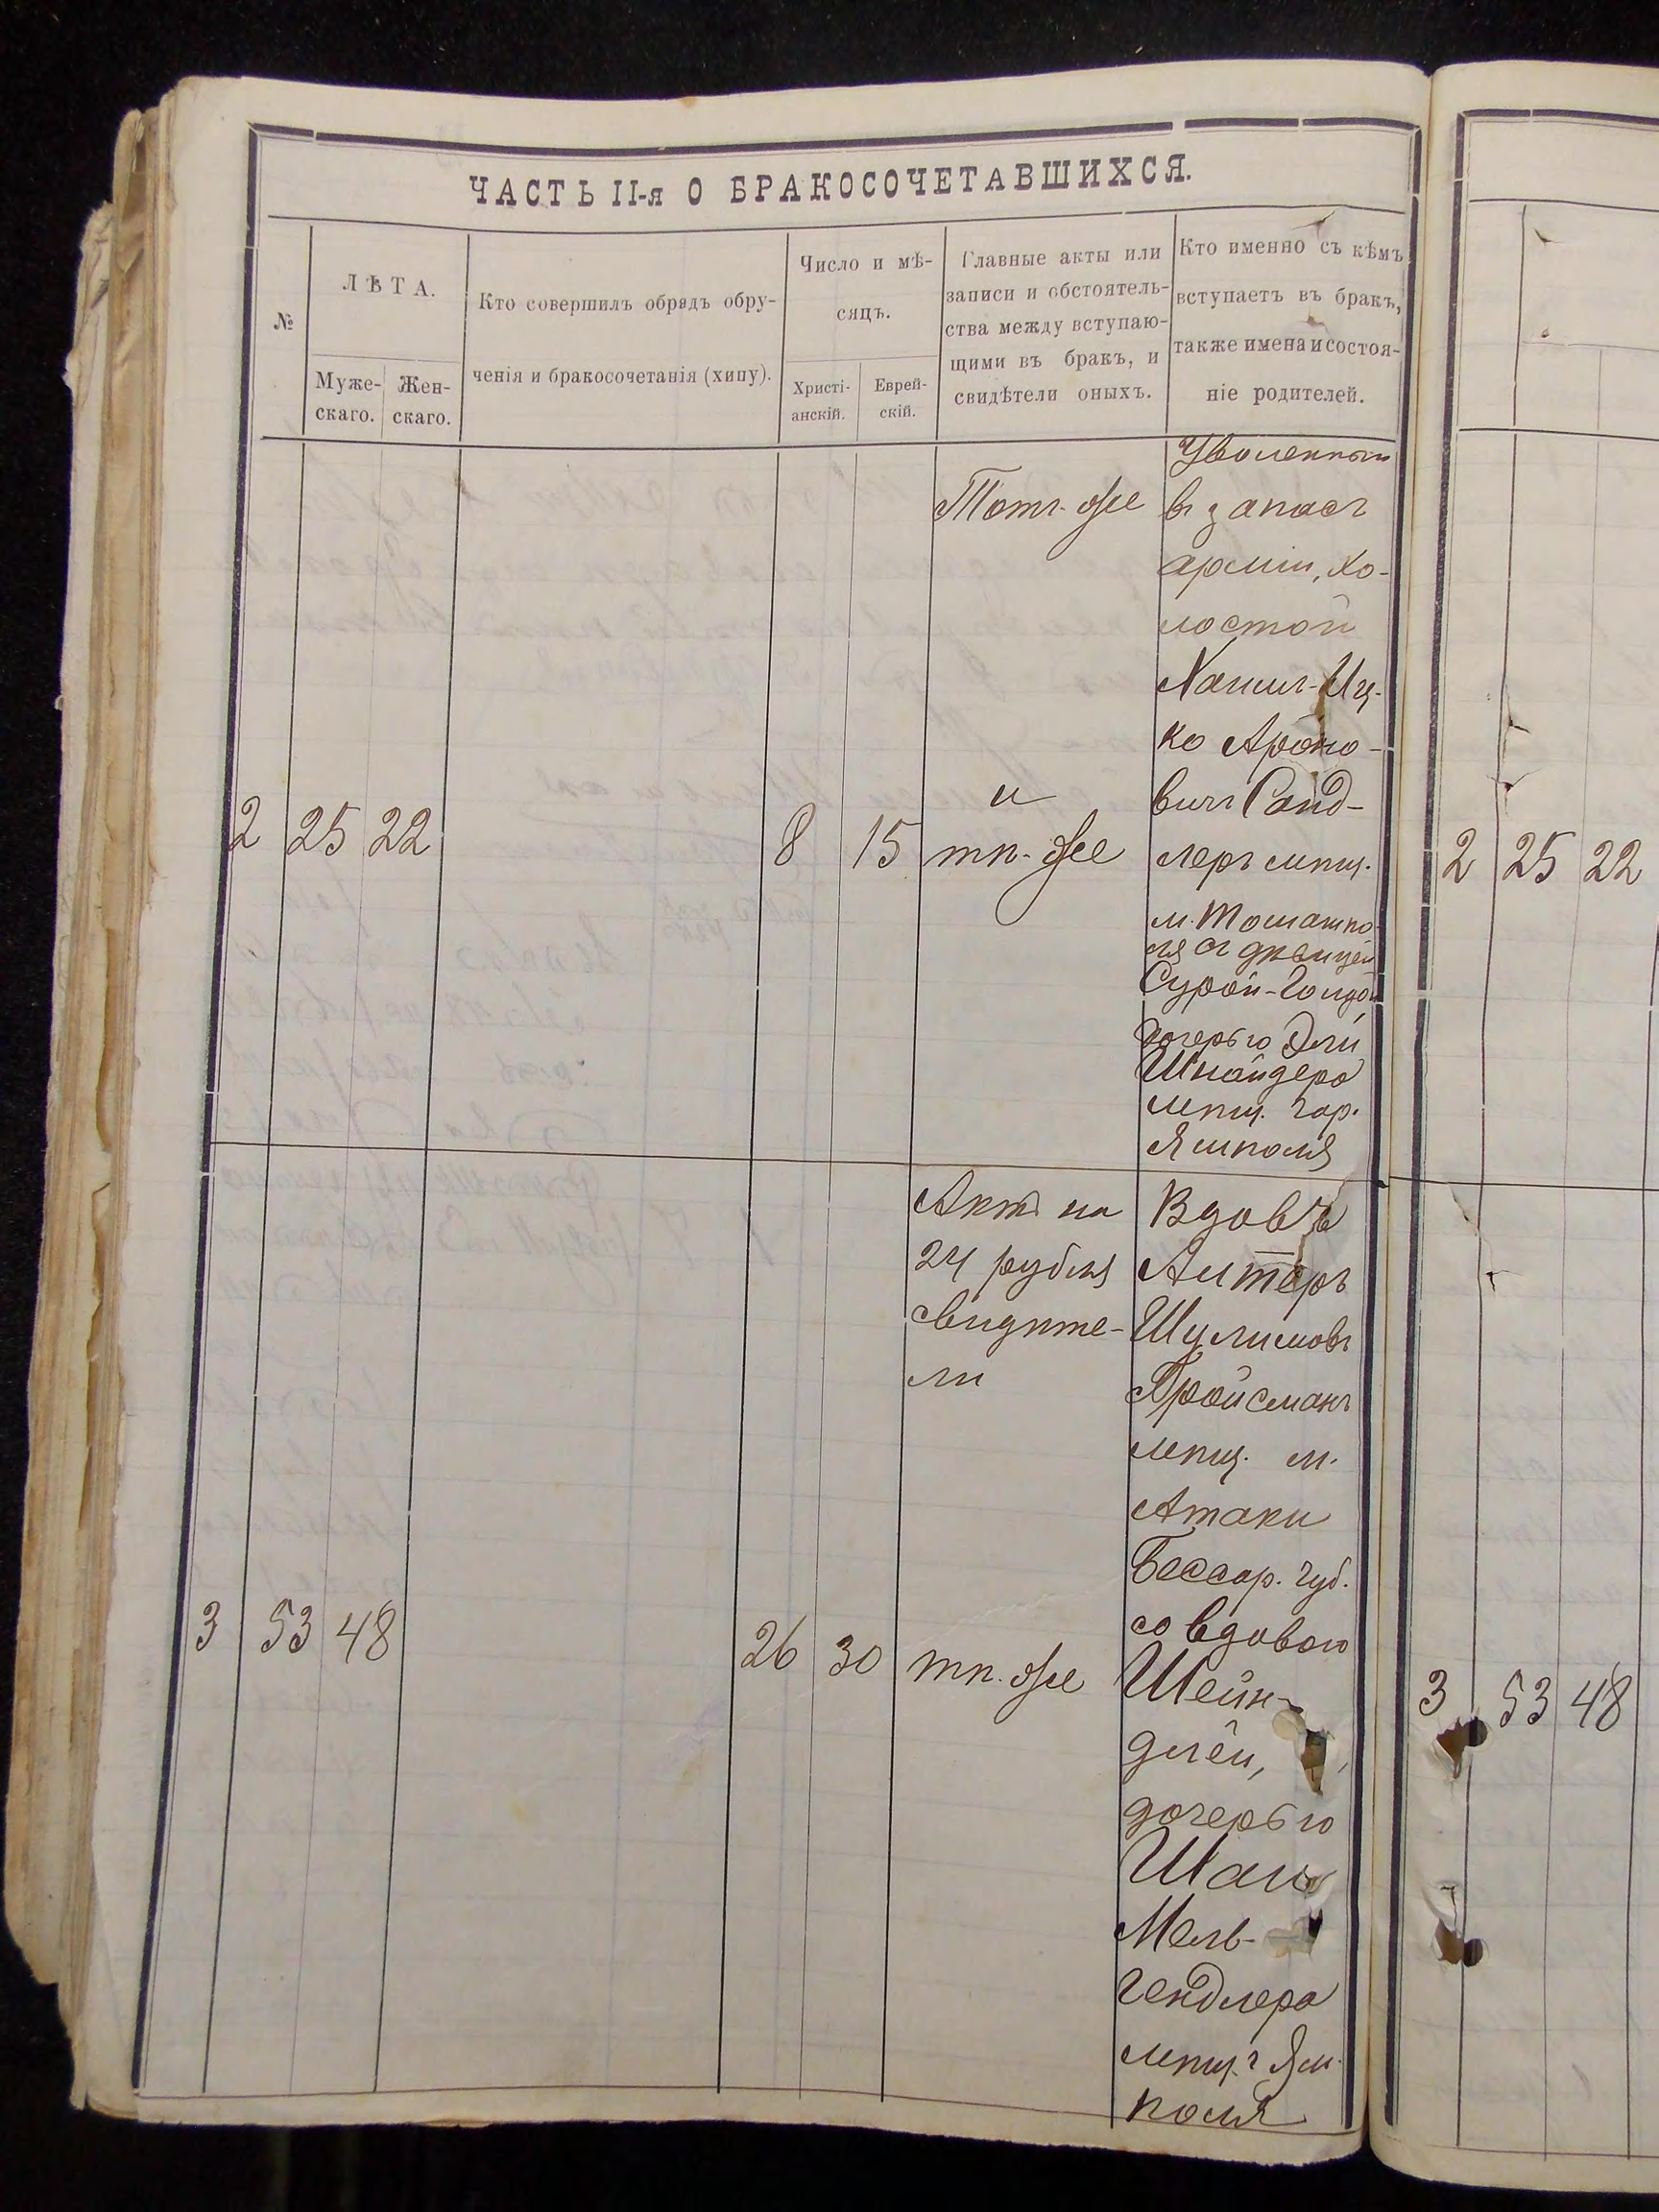 ЧАСТЬ II-я О БРАКОСОЧЕТАВШИХСЯ.
№
ЛѢТА.
Муже-
скаго.
Жен-
скаго.
Кто совершилъ обрядъ обру-
ченія и бракосочетанія (хипу).
Число и мѣ-
сяцъ.
Христі-
анскій.
Еврей-
скій.
Главные акты или
записи и обстоятель-
ства между вступаю-
щими въ бракъ, и
свидѣтели оныхъ.
Кто именно съ кѣмъ
вступаетъ въ бракъ,
также имена и состоя-
ніе родителей.
2
25
22
8
15
Тотъ-же
и
тѣ-же
Уволенный
въ запасъ
арміи, хо-
лостой
Хаимъ-Иц-
ко Ароно-
вичъ Санд-
леръ мѣщ.
м. Томашпо-
ля съ дѣвицей
Сурой-Голдой
дочерью Эли
Шнайдера
мѣщ. гор.
Ямполя
3
53
48
26
30
Актъ на
24 рубля
свидѣте-
ли
тѣ-же
Вдовъ
Алтеръ
Шулимовъ
Гройсманъ
мѣщ. м.
Атаки
Бессар. губ.
со вдовою
Шейн-
длей,
дочерью
Мель-
гендлера
мѣщ. г Ям-
поля
2
25
22
3
53
48